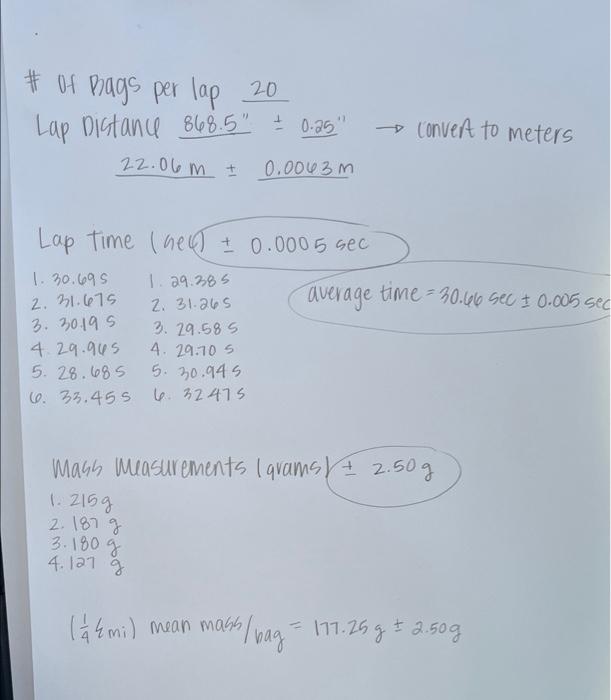 # Of Bags per lap 20
Lap Distance 868.5" ± 0.25" → convert to meters
22.06 m ± 0.0063 m
Lap time (sec) ± 0.0005 sec
1. 30.69 s 1. 29.38 s
2. 31.67 s 2. 31.26 s
average time = 30.66 sec ± 0.005 sec
3. 30.19 s 3. 29.58 s
4. 29.96 s 4. 29.70 s
5. 28.68 s 5. 30.94 s
6. 33.45 s 6. 32.47 s
Mass Measurements (grams) ± 2.50 g
1. 215 g
2. 187 g
3. 180 g
4. 127 g
(1/4 Σmi) mean mass/bag = 177.25 g ± 2.50 g